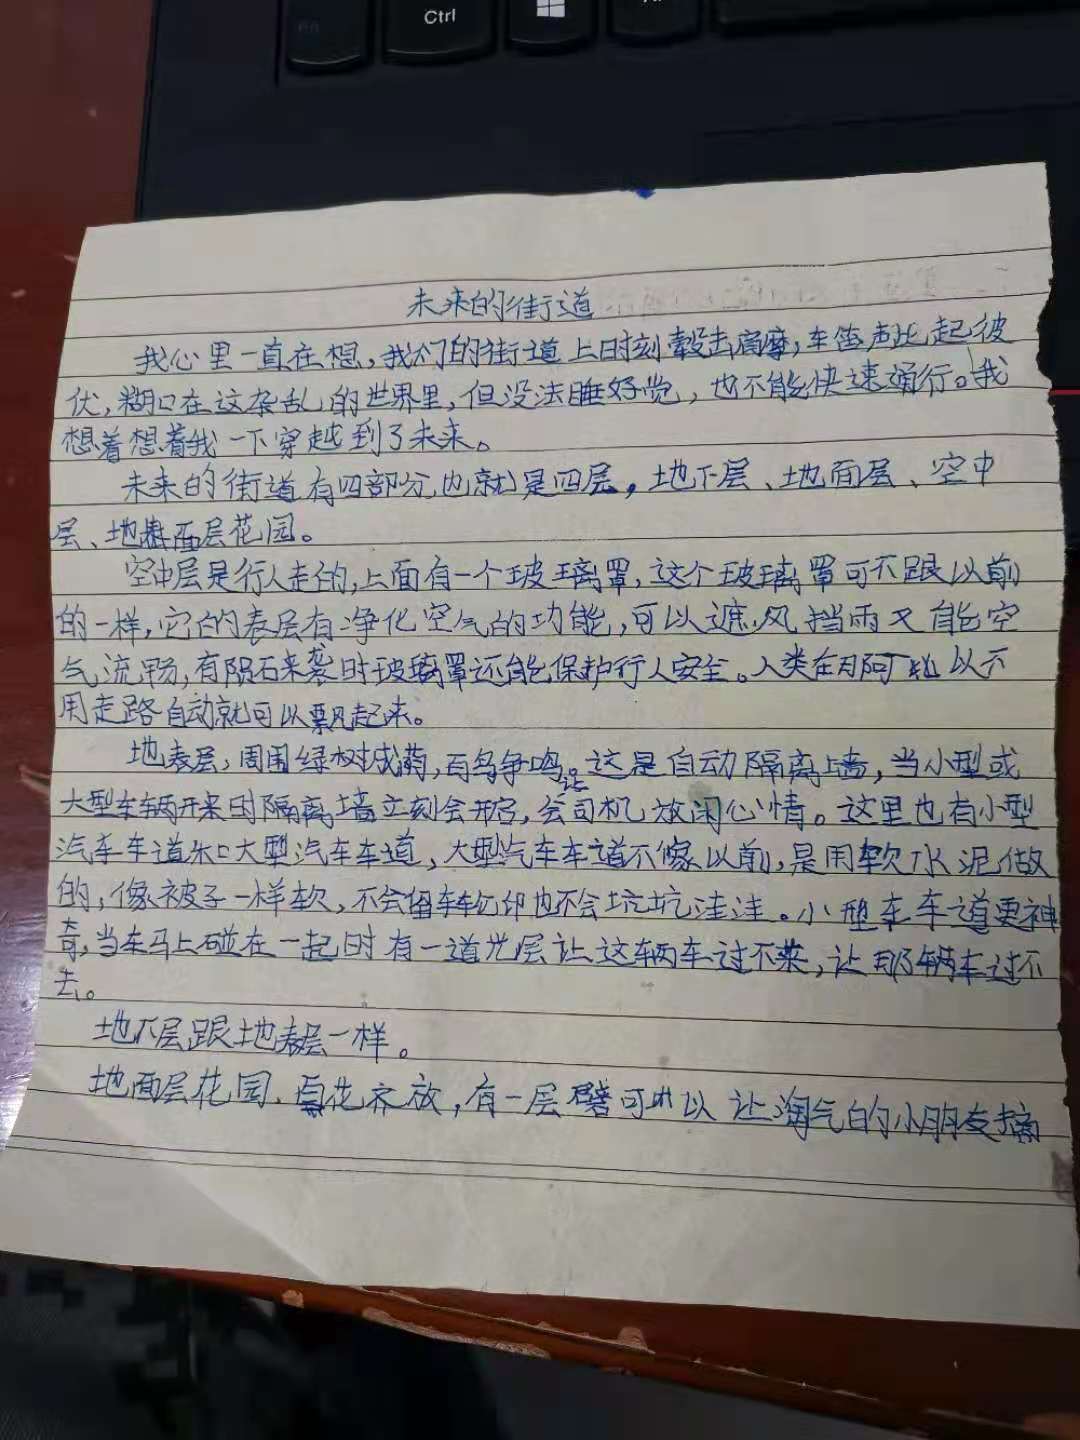 Ctrl
未来的街道
我心里一直在想，我们的街道上时刻毂击肩摩，车笛声此起彼
伏，糊口在这杂乱的世界里，但没法睡好觉，也不能快速通行。我
想着想着我一下穿越到了未来。
未来的街道有四部分也就是四层，地下层、地面层、空中
层、地面层花园。
空中层是行人走的，上面有一个玻璃罩，这个玻璃罩可不跟以前
的一样，它的表层有净化空气的功能，可以遮风挡雨又能空
气流畅，有陨石来袭时玻璃罩还能保护行人安全。人类在那可以不
用走路自动就可以飘起来。
地表层，周围绿树成荫，百鸟争鸣。这是自动隔离墙，当小型或
大型车辆开来时隔离墙立刻会形容，会让司机放闲心情。这里也有小型
汽车车道和大型汽车车道，大型汽车车道不像以前，是用软水泥做
的，像被子一样软，不会留车轮印也不会坑坑洼洼。小型车车道更神
奇，当车马上碰在一起时有一道光层让这辆车过不来，让那辆车过不
去。
地下层跟地表层一样。
地面层花园．百花齐放，有一层 可以让淘气的小朋友摘